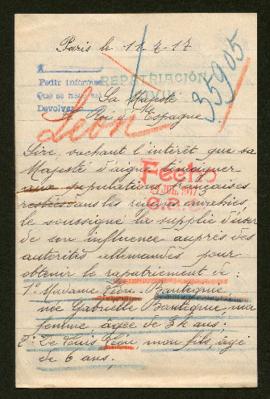 Paris le 11-7-17
A
Pedir informes
Que se
Devolver
REPATRIACIÓN
35905
Sa Majesté
Roi d'Espagne
León
Sire, sachant l'intérêt que sa
Majesté daigne témoigner
aux populations françaises
restées dans les régions envahies,
Fecho
JUL. 1917
le soussigné la supplie d'user
de son influence auprès des
autorités allemandes pour
obtenir le rapatriement de :
1° Madame Léon-Bantegnie,
née Gabrielle Bantegnie, ma
femme agée de ans :
2° Louis Léon, mon fils, agé
de 6 ans.